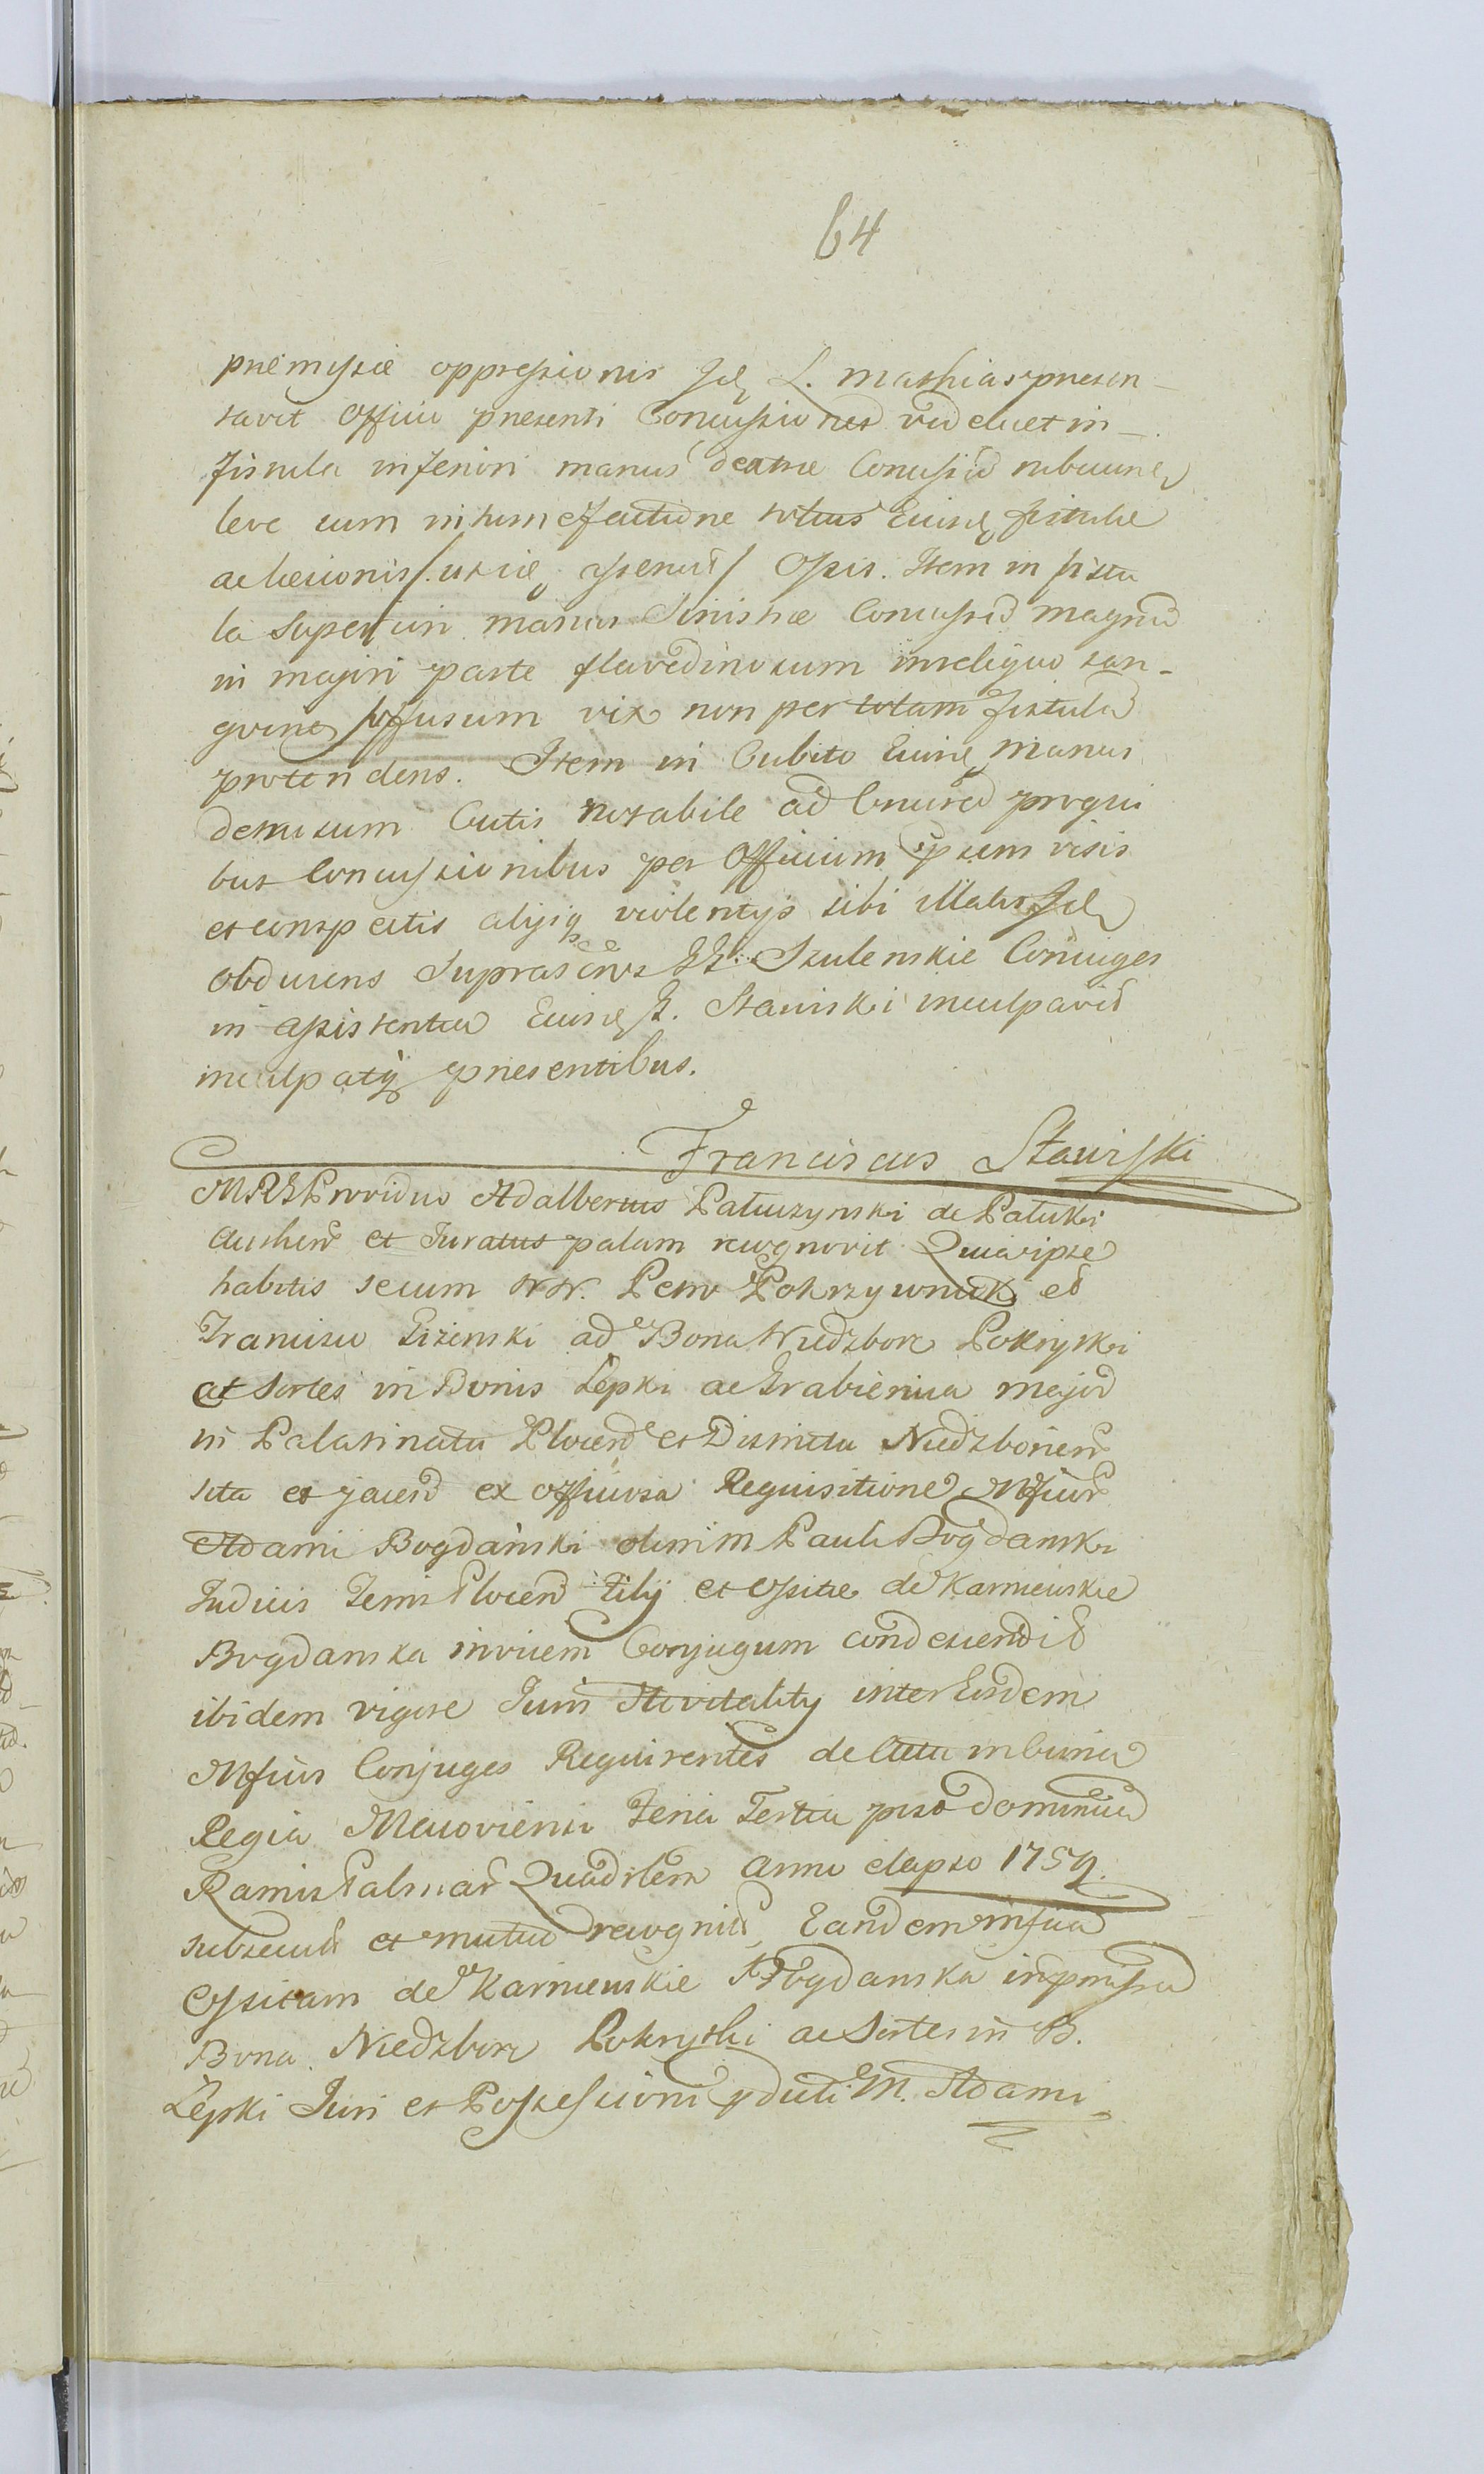 64
premissæ oppressionis Idē L. Mathias presen-
tavit Officio presenti Concussiones videlicet in-
fistula inferiori manus dextræ Concussū
leve cum intumefactione totius Eiusdē fistulæ
ac læsionis/: uti sic asseruit/ Ossis. Item in fistu
la Superiori manus Sinistræ Concussū magnū
in majori parte flavedinosum in reliquo san-
gvine suffusum vix non per totam fistulā
protendens. Item in Cubito Eiusdē manus
detrusum Cutis notabile ad Cruorē pro qui
bus Concussionibus per Officium ipsum visis
et conspectis alijsq violentijs sibi illatis Idē
obducens Suprascrios GG. Szulenskie Coniuges
in assistentia Eiusdē G. Stawiski inculpavit
inculpatq presentibus.
Franciscus Stawiski
MRG Providus Adalbertus Paluszynski de Paluki
authen et Juratus palam recognovit Quia ipse
habitis secum NN. Petro Pokrzywnicki et
Francisco Pizenski ad Bona Niedzborz Pokrytki
et Sortes in Bonis Łępki ac Grabienica major
in Palatinatu Plocen et Districtu Niedzborien
sita et jacen ex officiosa Requisitione Mficor
Adami Bogdański olim M Pauli Bogdanski
Judicis Terris Plocen Filij et Cssitæ de Karniewskie
Bogdanska invicem Conjugum condescendit
ibidem vigore Juris Advitalitij inter Eosdem
Mficos Conjuges Requirentes de Actu in Curia
Regia Mazoviensi Feria Tertia post Dominicā
Ramis Palmar Quadrlem Anno elapso 1759.
subsecuti et mutuo recogniti Eandem Mficā
Cssicam de Karniewskie Bogdanska in præmissa
Bona Niedzborz Pokrytki ac Sortes in B.
Łępki Juri et Possessioni pduti M. Adami